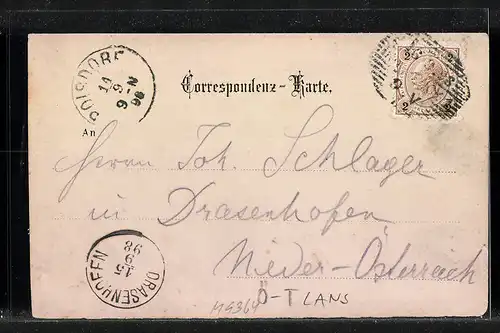 POYSDORF
14
9
9-N
98
Correspondenz-Karte.
An
Herrn Joh. Schlager
in Drasenhofen
Nieder-Österreich
DRASENHOFEN
15
9
98
Ö-T LANS